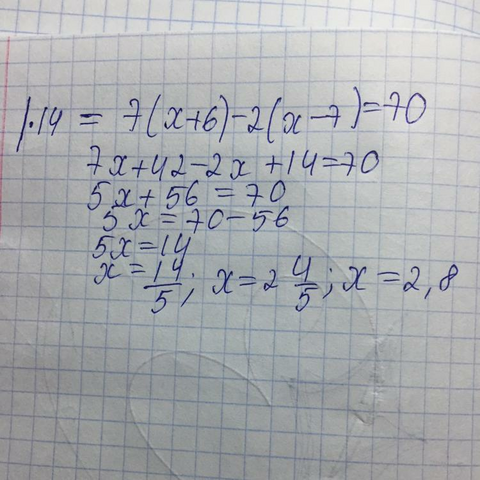 |·14 = 7(x+6)-2(x-7)=70
7x+42-2x+14=70
5x+56=70
5x=70-56
5x=14
x=14/5; x=2 4/5; x=2,8